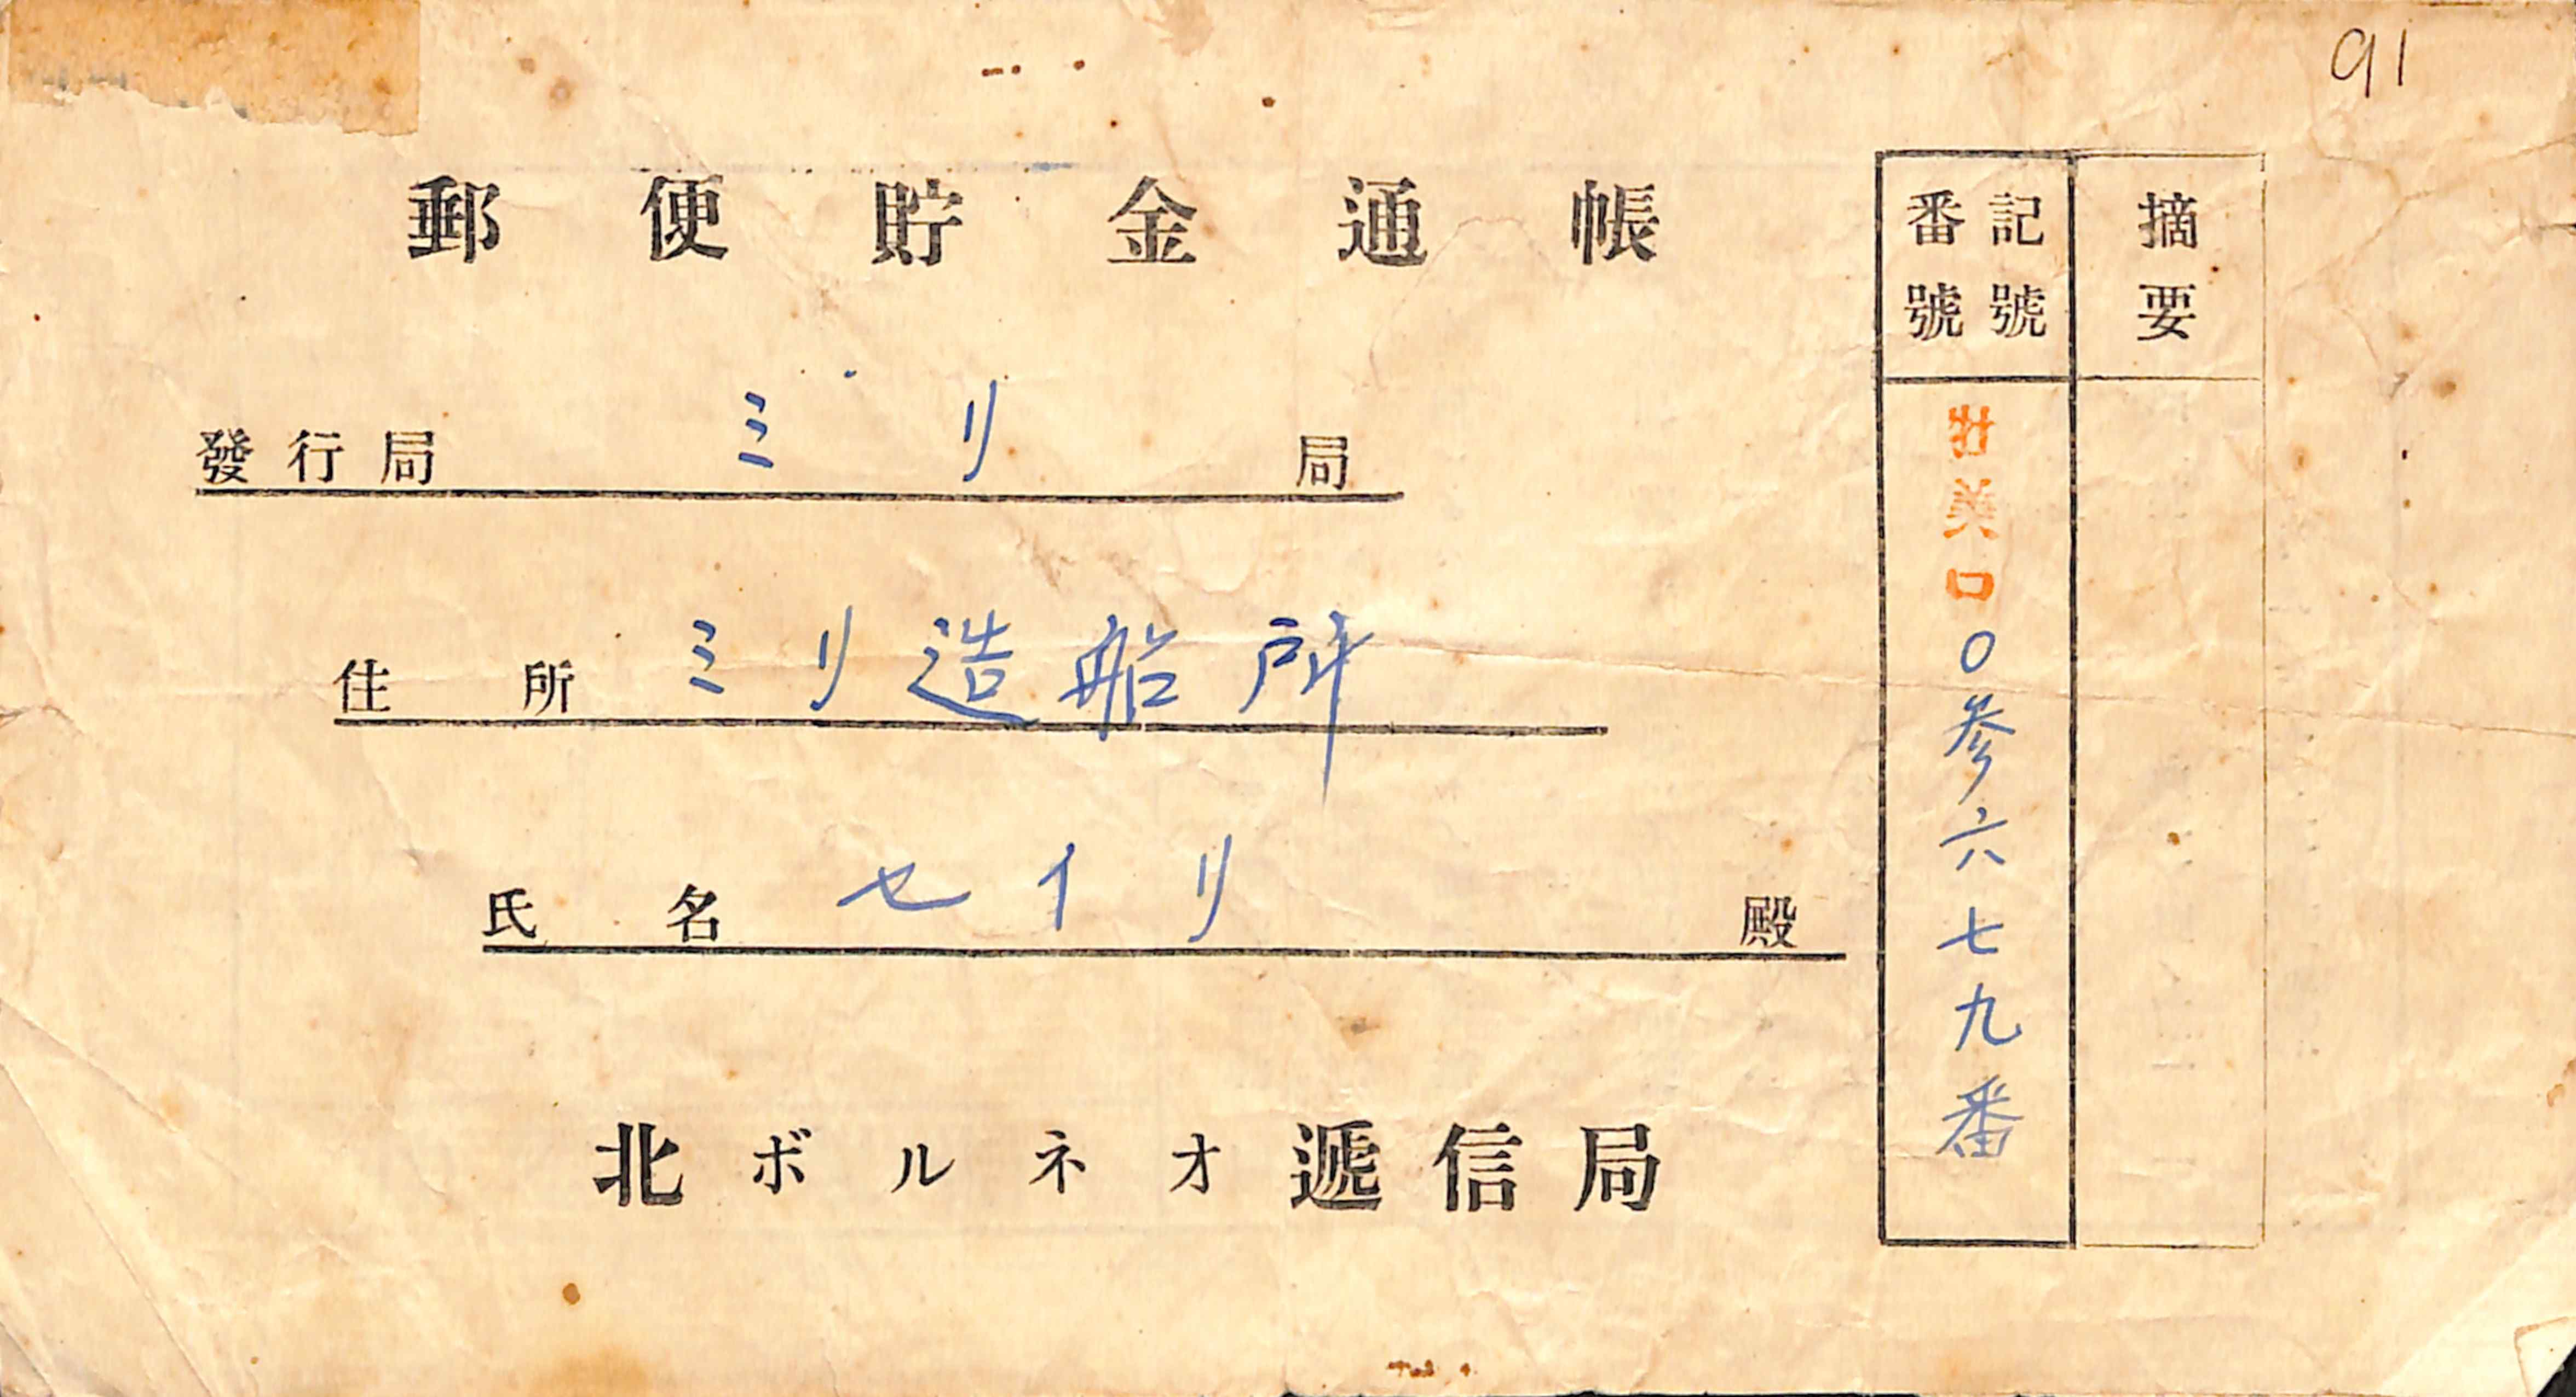 91
郵便貯金通帳
發行局 ミリ 局
住所 ミリ造船所
氏名 セイリ 殿
北ボルネオ遞信局
摘要
記號
番號
壮美口〇参六七九番